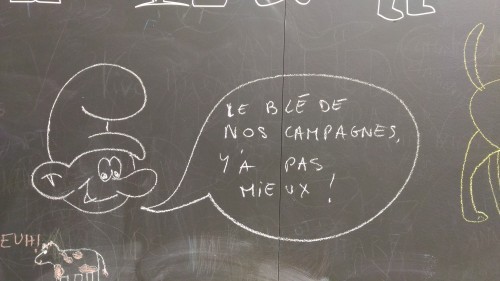 LE BLÉ DE
NOS CAMPAGNES,
Y'A PAS
MIEUX !
EUH!